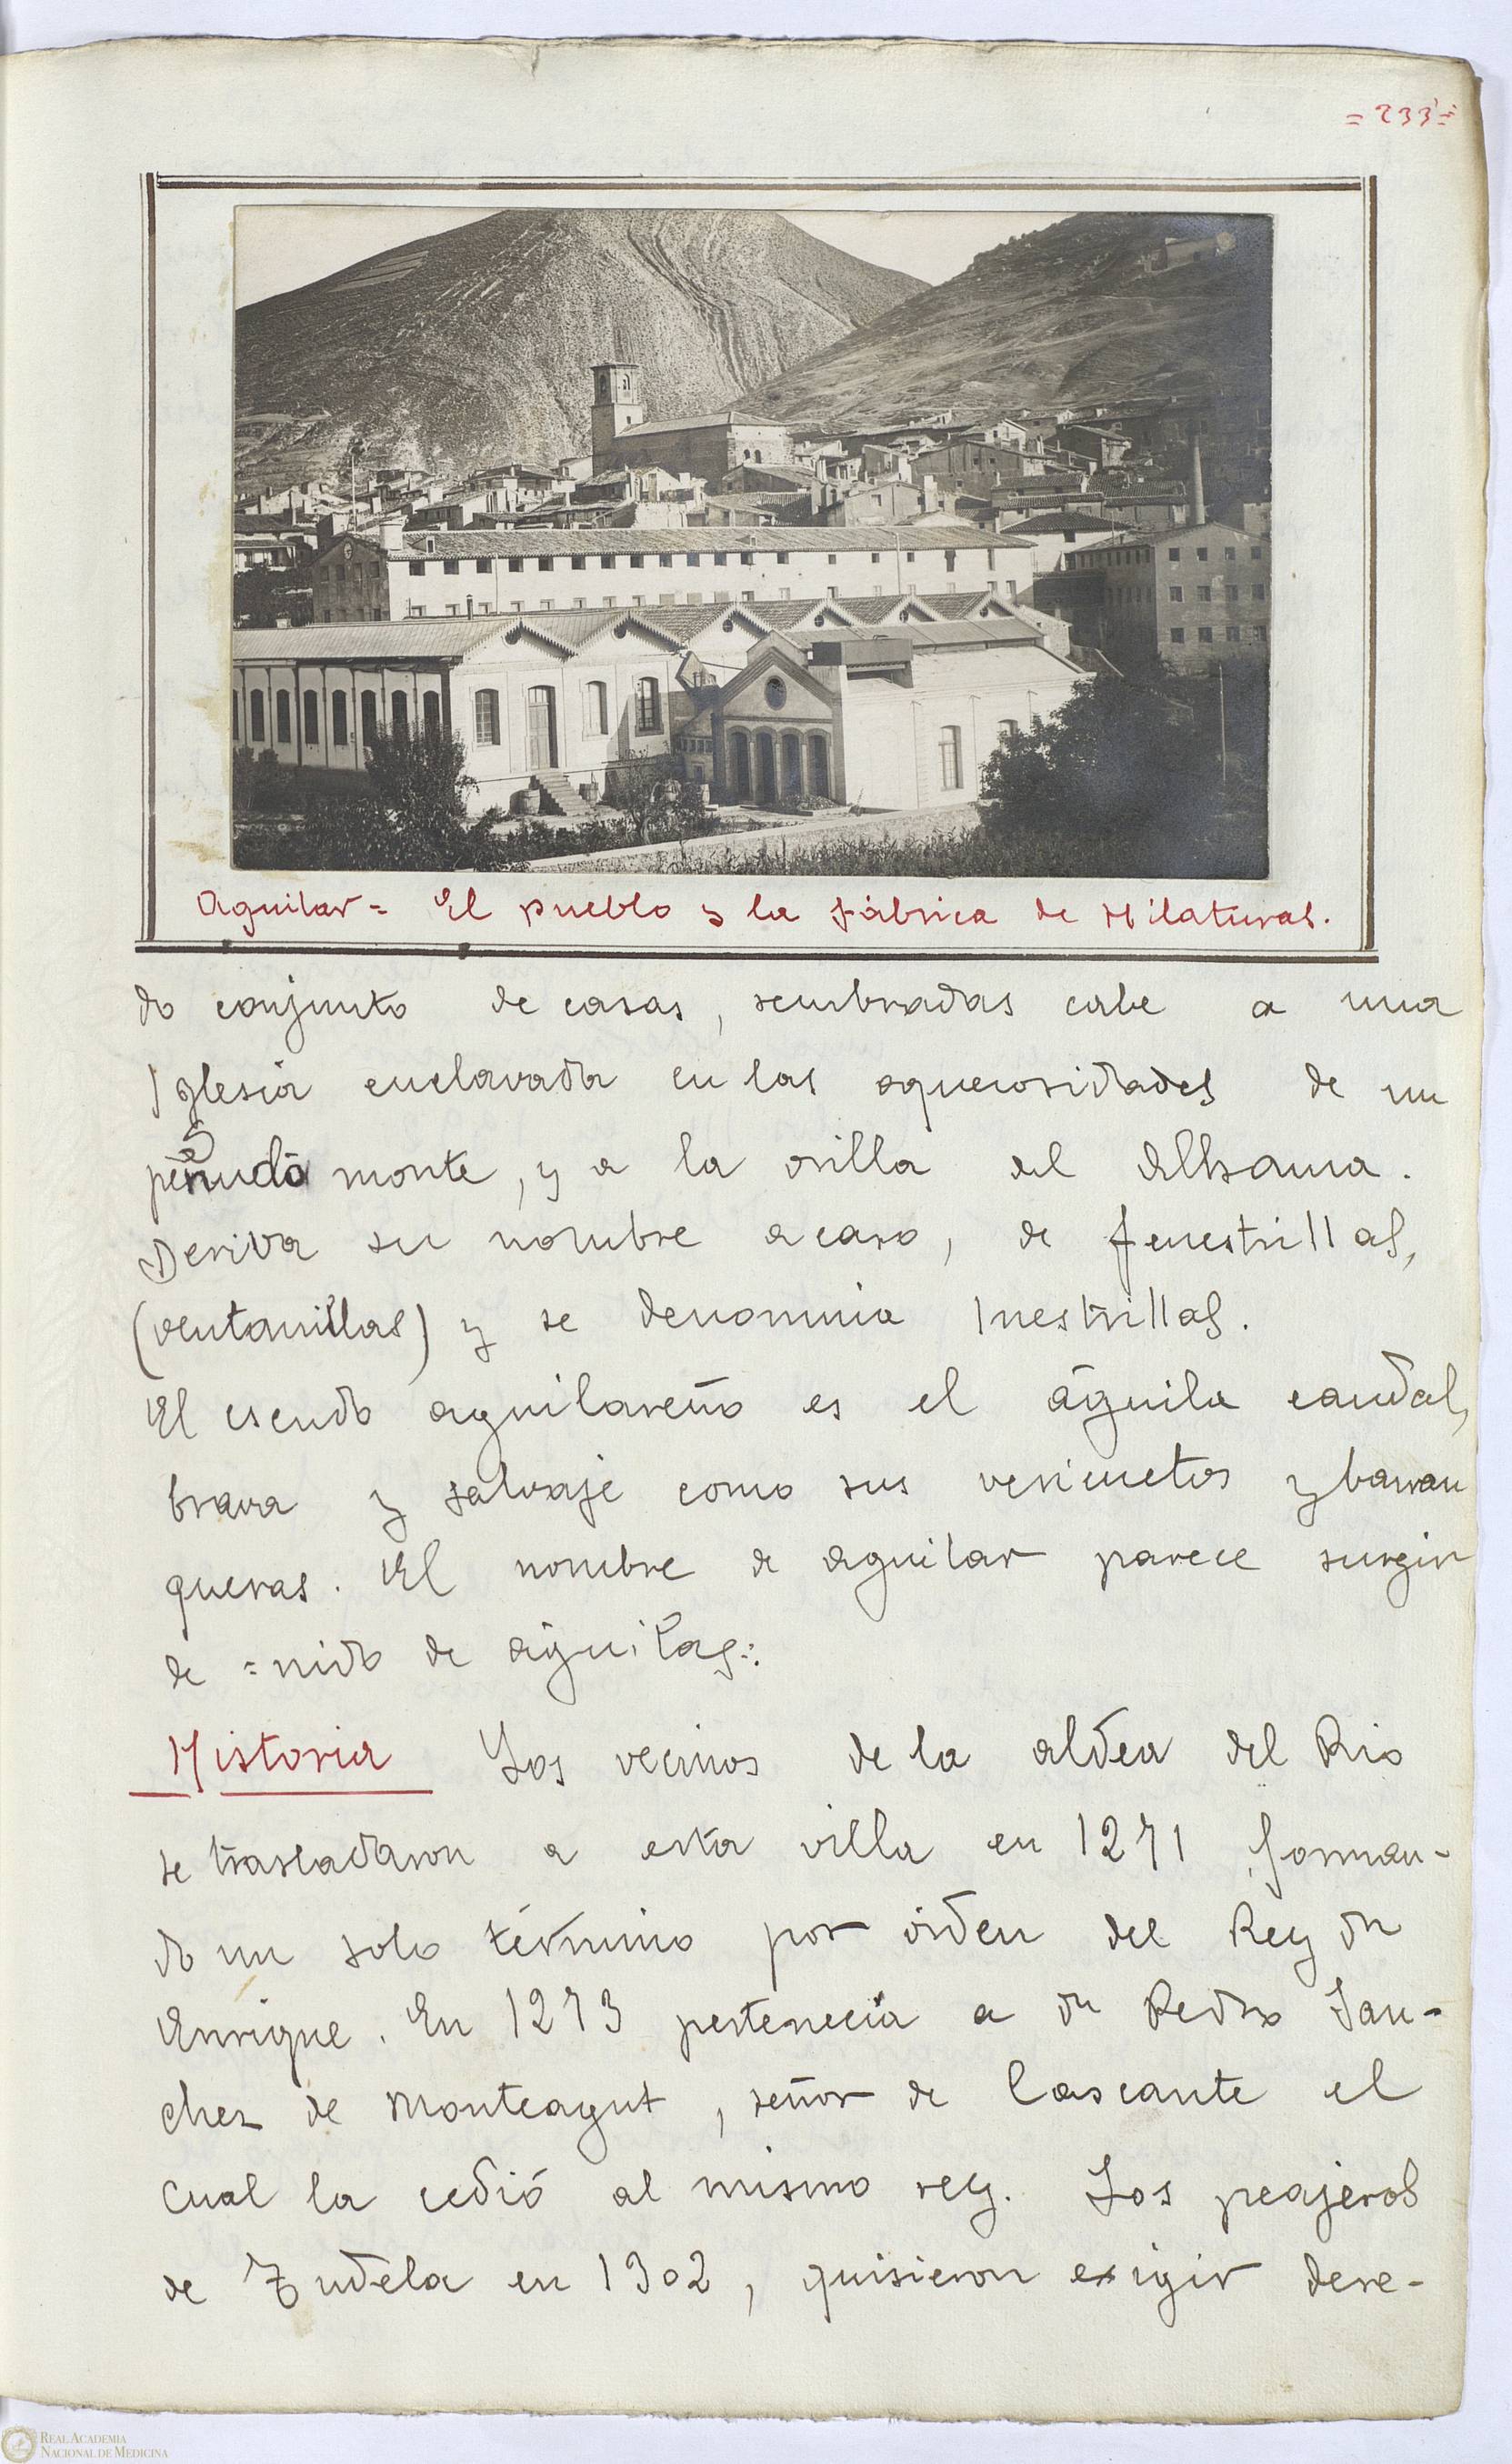 = 233 =
Aguilar = El pueblo y la fábrica de Hilaturas.
do conjunto de casas, sembradas cabe a una
Iglesia enclavada en las oquerosidades de un
peñudo monte, y a la orilla del Alhama.
Deriva su nombre acaso, de fenestrillas,
(ventanillas) y se denomina Inestrillas.
El escudo aguilareño es el águila caudal,
brava y salvaje como sus vericuetos y barran
queras. El nombre de Aguilar parece surgir
de =nido de águilas=.
Historia Los vecinos de la aldea del Rio
se trasladaron a esta villa en 1271 forman-
do un solo término por órden del Rey dn
Enrique. En 1273 pertenecía a dn Pedro San-
chez de Monteagut, señor de Cascante el
cual la cedió al mismo rey. Los peajeros
de Tudela en 1302, quisieron exigir dere-
REAL ACADEMIA
NACIONAL DE MEDICINA